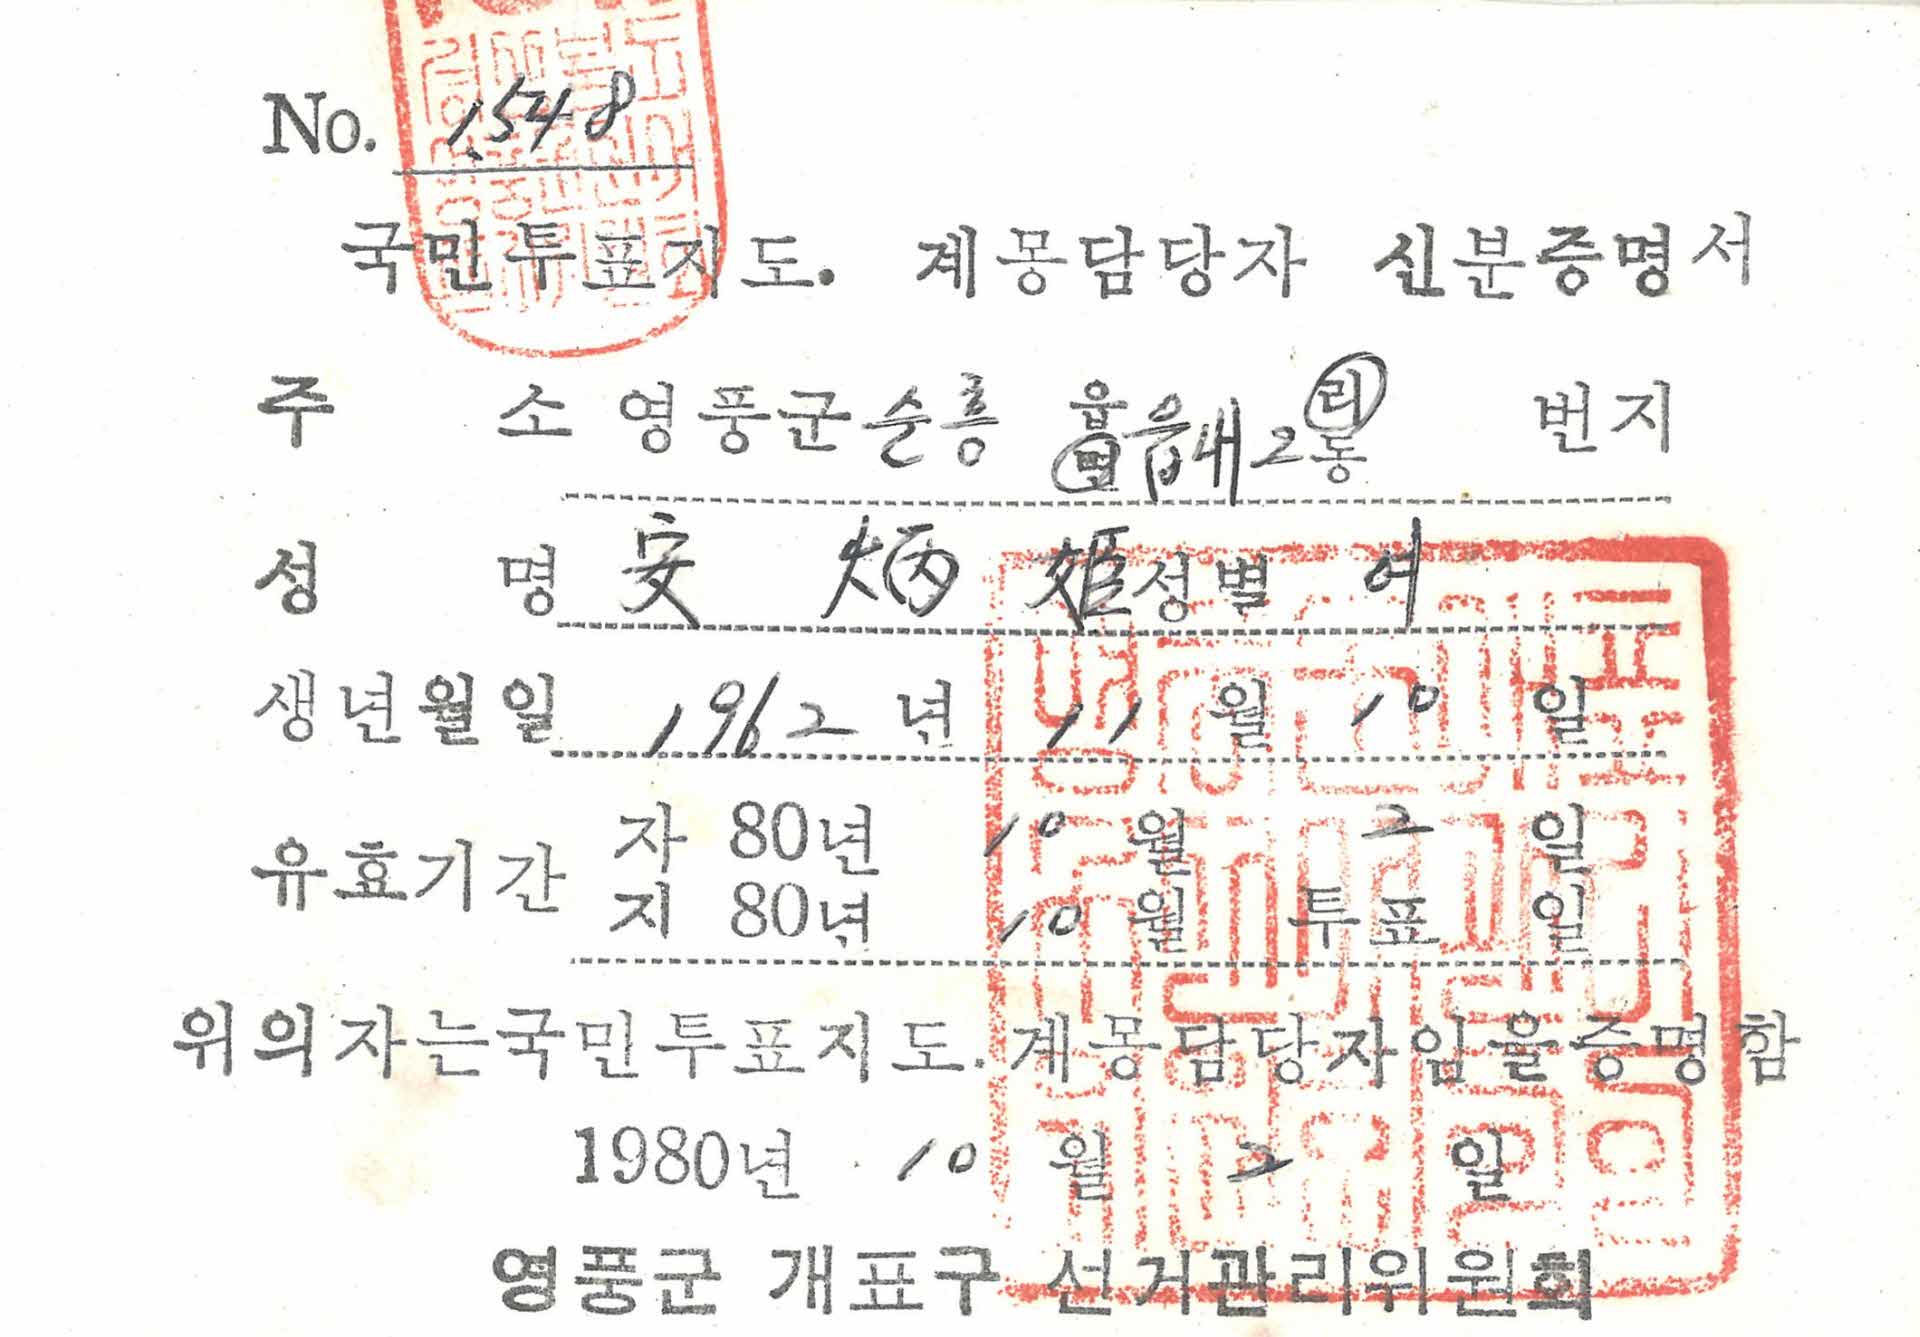 No. 1,548
국민투표지도. 계몽담당자 신분증명서
주 소 영풍군 순흥 읍면 읍내 2 리동 번지
성 명 安 炳 姬 성별 여
생년월일 1962 년 11 월 10 일
유효기간 자 80년 10 월 2 일
지 80년 10 월 투표일
위의자는국민투표지도.계몽담당자임을증명함
1980년 10 월 2 일
영풍군 개표구 선거관리위원회